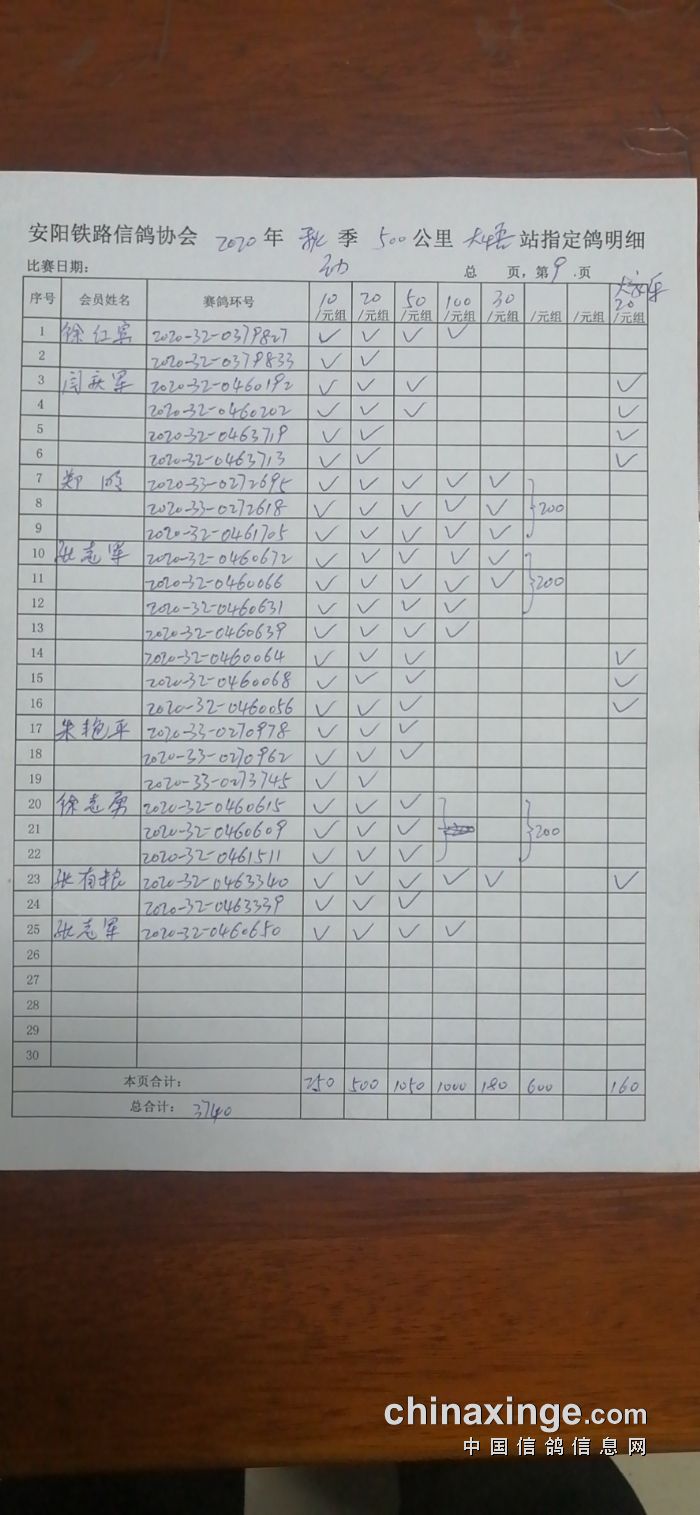 安阳铁路信鸽协会 2020 年 秋 季 500 公里 大悟 站指定鸽明细
比赛日期: 总 页,第 9 页
序号 会员姓名 赛鸽环号 10/元组 20/元组 50/元组 100/元组 30/元组 /元组 /元组 20/元组
1 徐红宾 2020-32-0379827 ✓ ✓ ✓ ✓
2 2020-32-0379833 ✓ ✓
3 闫庆军 2020-32-0460192 ✓ ✓ ✓ ✓
4 2020-32-0460202 ✓ ✓ ✓ ✓
5 2020-32-0463719 ✓ ✓ ✓
6 2020-32-0463713 ✓ ✓ ✓
7 郑 2020-33-0272695 ✓ ✓ ✓ ✓ ✓
8 2020-33-0272618 ✓ ✓ ✓ ✓ ✓ 200
9 2020-32-0461705 ✓ ✓ ✓ ✓ ✓
10 张志军 2020-32-0460672 ✓ ✓ ✓ ✓ ✓
11 2020-32-0460066 ✓ ✓ ✓ ✓ ✓ 200
12 2020-32-0460631 ✓ ✓ ✓ ✓
13 2020-32-0460639 ✓ ✓ ✓ ✓
14 2020-32-0460064 ✓ ✓ ✓ ✓
15 2020-32-0460068 ✓ ✓ ✓ ✓
16 2020-32-0460056 ✓ ✓ ✓ ✓
17 朱艳平 2020-33-0270978 ✓ ✓ ✓
18 2020-33-0270962 ✓ ✓ ✓
19 2020-33-0273745 ✓ ✓
20 徐志勇 2020-32-0460615 ✓ ✓ ✓
21 2020-32-0460609 ✓ ✓ ✓ 200
22 2020-32-0461511 ✓ ✓ ✓
23 张有粮 2020-32-0463340 ✓ ✓ ✓ ✓ ✓ ✓
24 2020-32-0463339 ✓ ✓ ✓
25 张志军 2020-32-0460650 ✓ ✓ ✓ ✓
26
27
28
29
30
本页合计: 250 500 1050 1000 180 600 160
总合计: 3740
chinaxinge.com
中国信鸽信息网